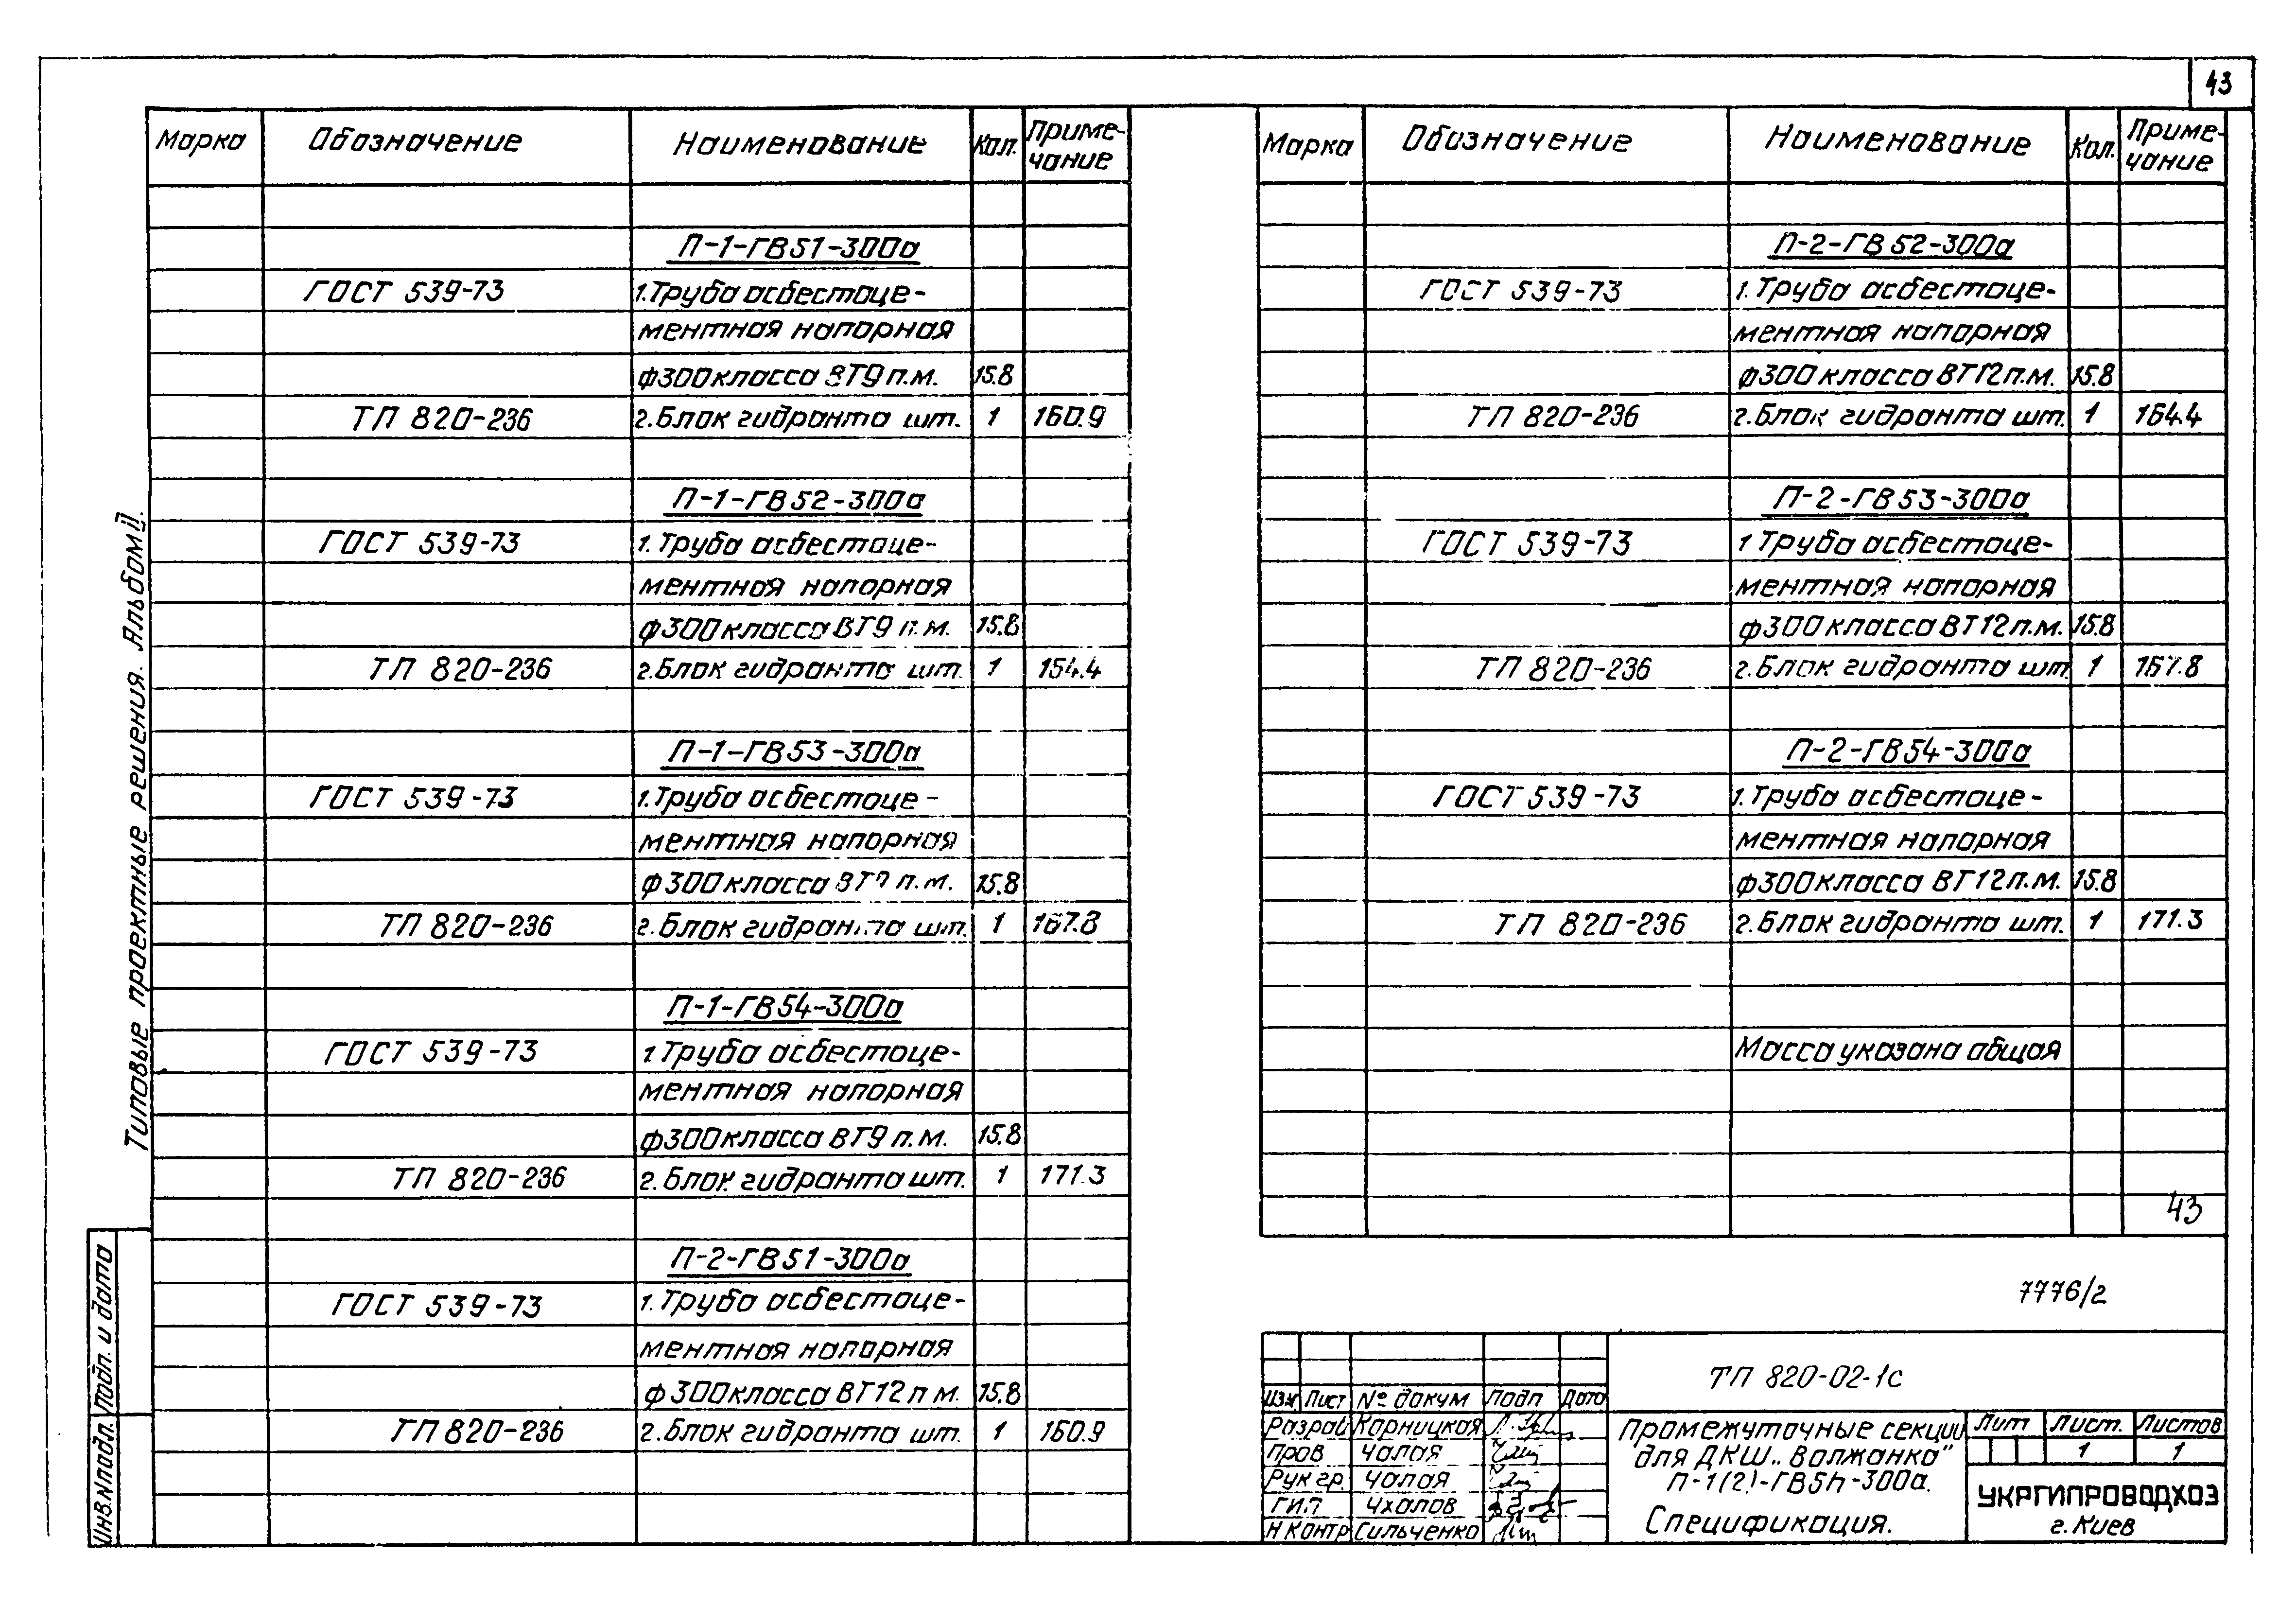 43
Марка Обозначение Наименование Кол. Приме-
чание
П-1-ГВ51-300а
ГОСТ 539-73 1.Труба асбестоце-
ментная напорная
ф300 класса ВТ9 п.м. 15.8
ТП 820-236 2.Блок гидранта шт. 1 160.9
П-1-ГВ52-300а
ГОСТ 539-73 1.Труба асбестоце-
ментная напорная
ф300 класса ВТ9 п.м. 15.8
ТП 820-236 2.Блок гидранта шт. 1 164.4
П-1-ГВ53-300а
ГОСТ 539-73 1.Труба асбестоце-
ментная напорная
ф300 класса ВТ9 п.м. 15.8
ТП 820-236 2.Блок гидранта шт. 1 167.8
П-1-ГВ54-300а
ГОСТ 539-73 1 Труба асбестоце-
ментная напорная
ф300 класса ВТ9 п.м. 15.8
ТП 820-236 2.Блок гидранта шт. 1 171.3
П-2-ГВ51-300а
ГОСТ 539-73 1.Труба асбестоце-
ментная напорная
ф300 класса ВТ12 п м. 15.8
ТП 820-236 2.Блок гидранта шт. 1 160.9
Марка Обозначение Наименование Кол. Приме-
чание
П-2-ГВ52-300а
ГОСТ 539-73 1.Труба асбестоце-
ментная напорная
ф300 класса ВТ12 п.м. 15.8
ТП 820-236 2.Блок гидранта шт. 1 164.4
П-2-ГВ53-300а
ГОСТ 539-73 1 Труба асбестоце-
ментная напорная
ф300 класса ВТ12 п.м. 15.8
ТП 820-236 2.Блок гидранта шт 1 167.8
П-2-ГВ54-300а
ГОСТ 539-73 1.Труба асбестоце-
ментная напорная
ф300 класса ВТ12 п.м. 15.8
ТП 820-236 2.Блок гидранта шт. 1 171.3
Масса указана общая
43
7776/2
Типовые проектные решения. Альбом
Подп. и дата
Инв.N подл.
ТП 820-02-1с
Изм Лист № докум Подп Дата
Разраб Корницкая
Пров Чалая
Рук гр. Чалая
ГИП Чхалов
Н контр Сильченко
Промежуточные секции
для ДКШ „Волжанка"
П-1(2)-ГВ5n-300а.
Спецификация.
Лит Лист. Листов
1 1
УКРГИПРОВОДХОЗ
г. Киев